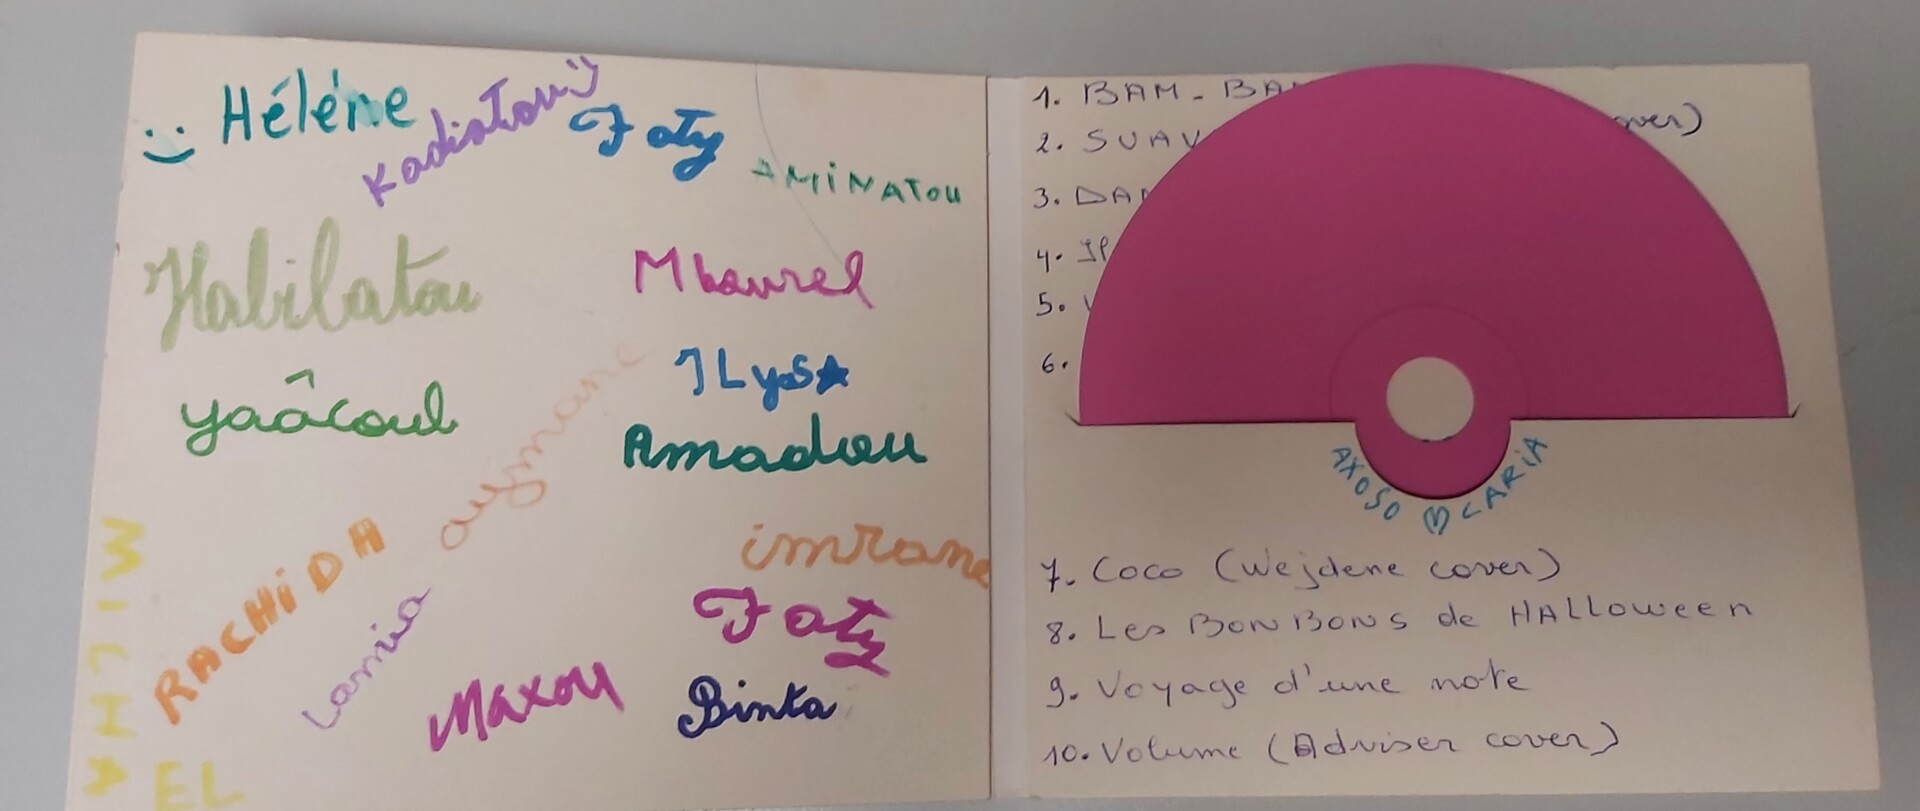 Hélène
Kadiatou
Faty
AMiNATOU
Habilatou
Mbaurel
yaâcoul
ILyas
Amadou
aymane
imrane
RACHiDA
Lamia
Faty
Maxou
Binta
EL
1. BAM-BAM
2. SUAV
over)
3. DAN
4.
5.
6.
AXOSO
CARiA
7. Coco (Wejdene cover)
8. Les BonBons de HALLoween
9. Voyage d'une note
10. Volume (Adviser cover)